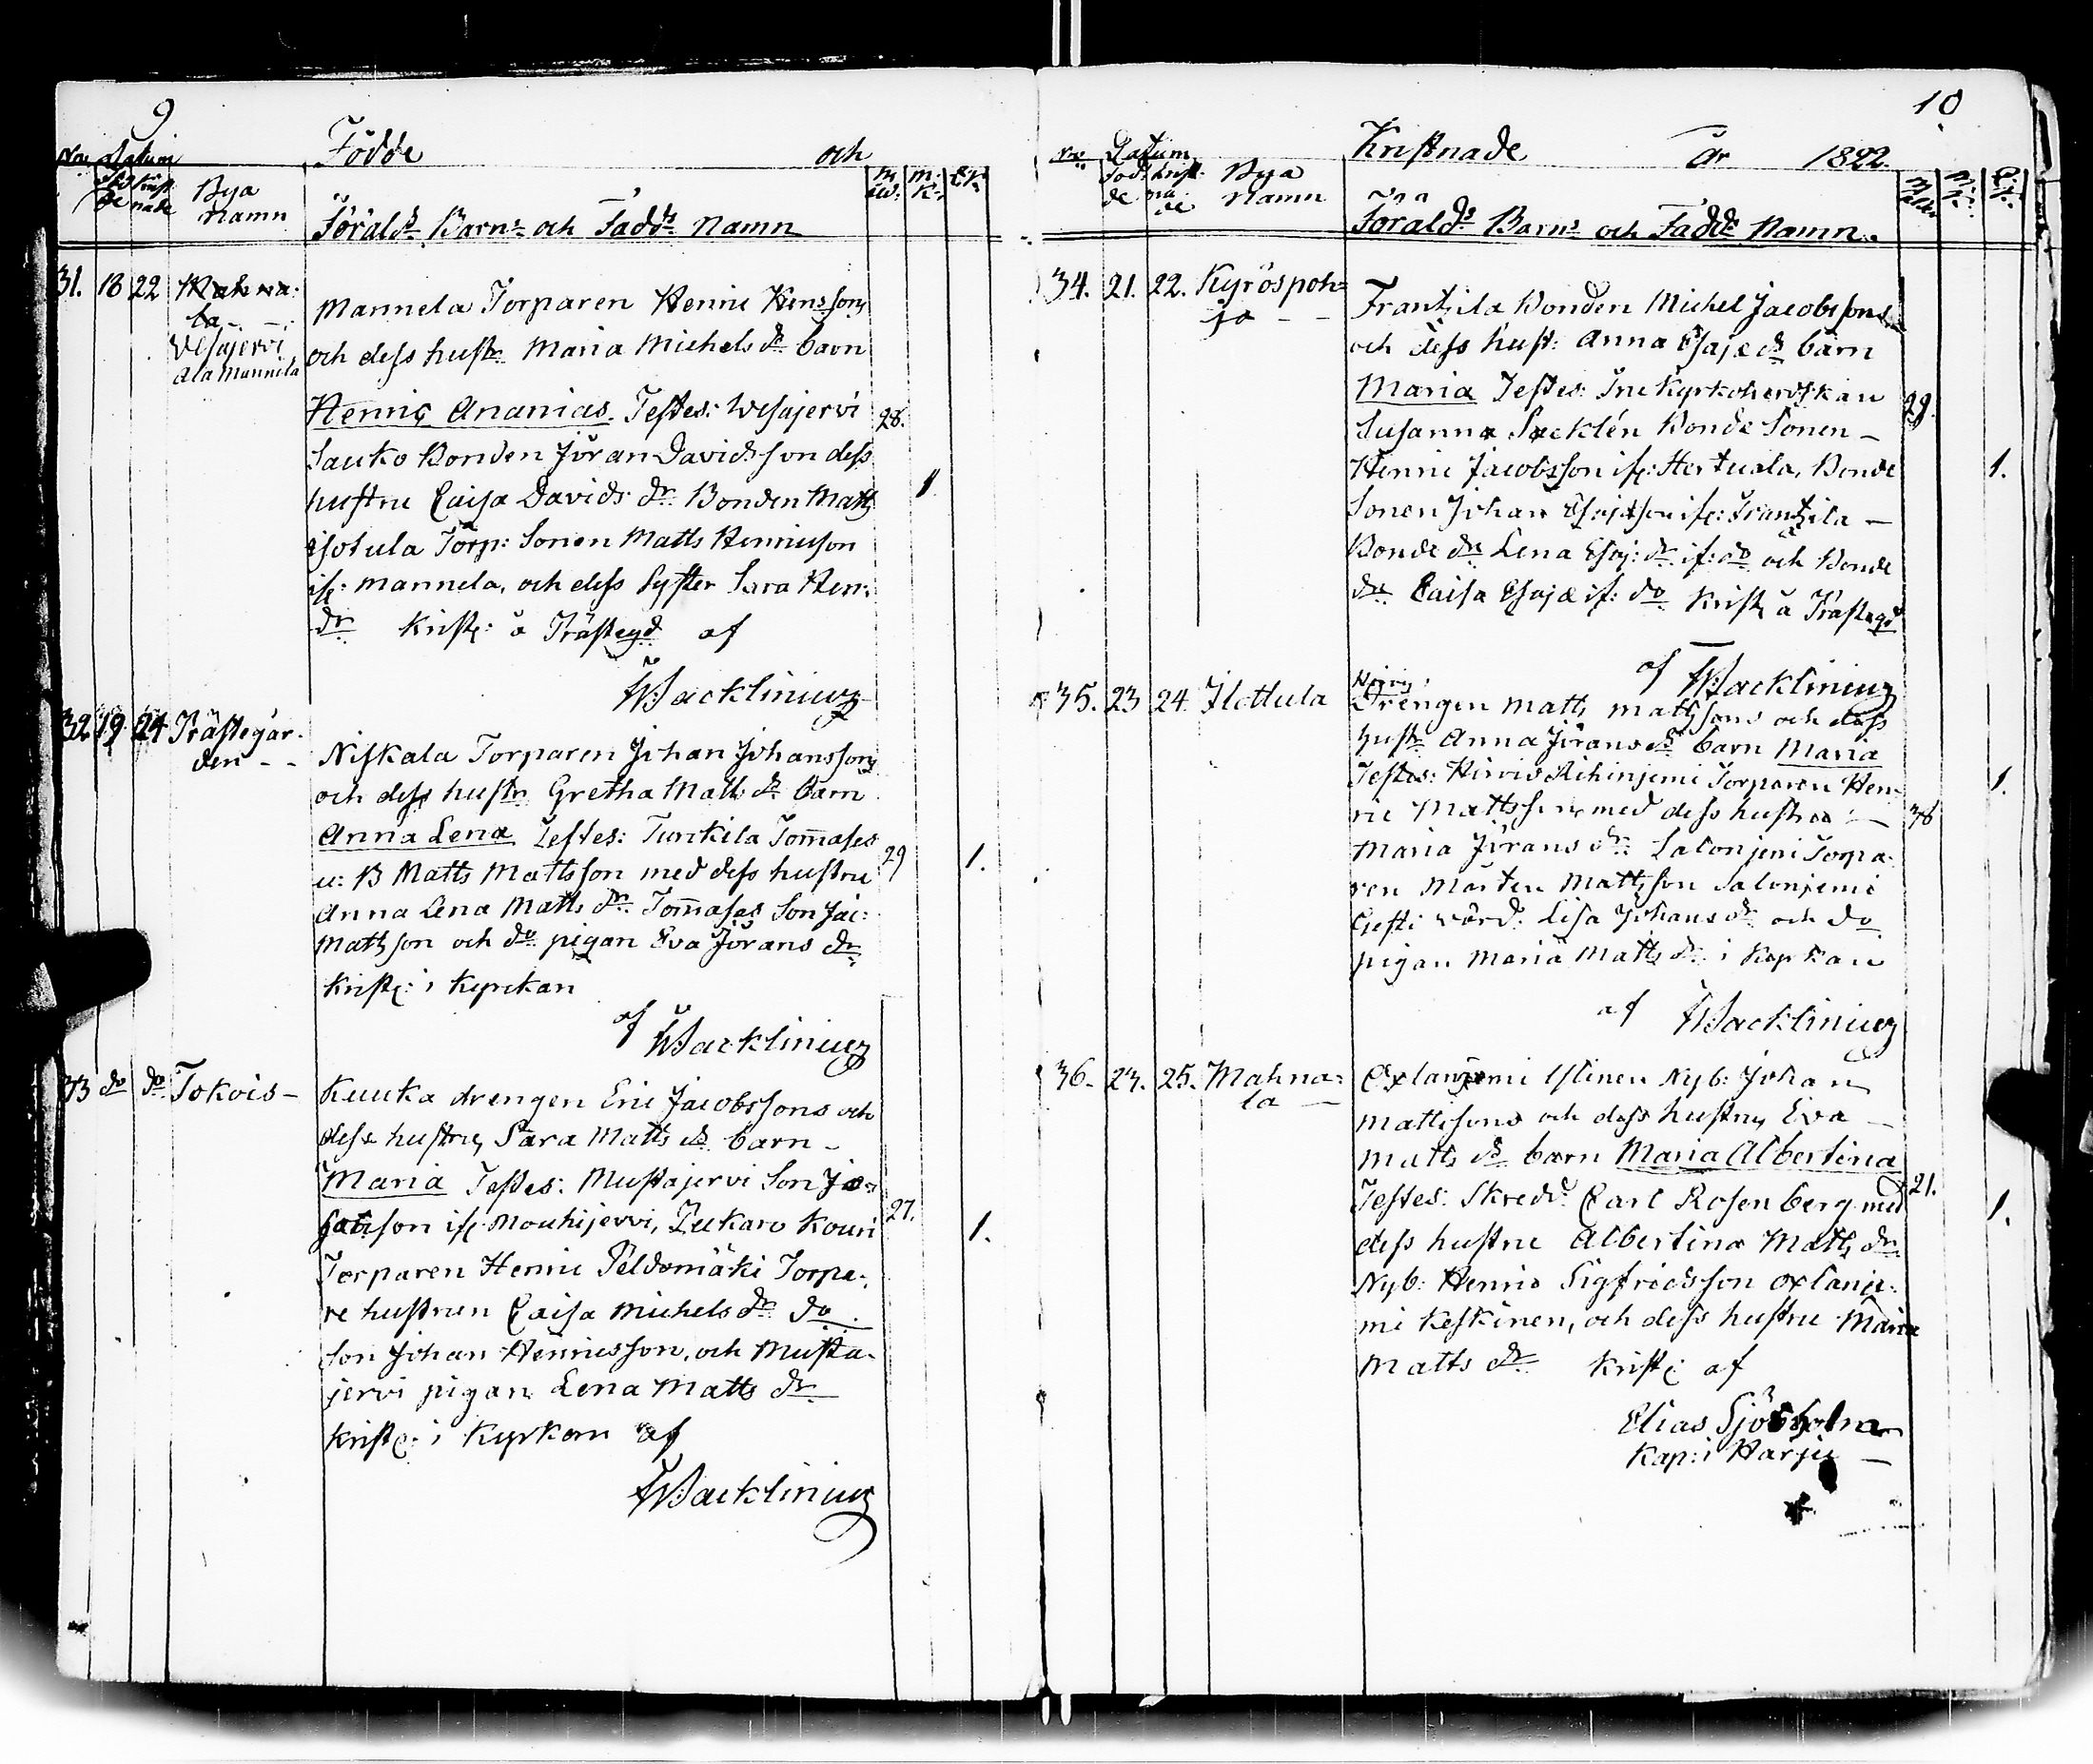 9
Födde och
No Datum
Föd de Krist nade Bya Namn
M åld: M: K: Q: K:
Föräld:s Barn:s och Fadd:s Namn
31. 18 22 Mahna:
la
Vesajervi
ala Mannila
Mannela Torparen Henric Henssons
och dess hustr: Maria Michels dr barn
Henric Ananias. Testes: Wesajervi
28.
Sauko Bonden Jöran Davidsson dess
hustru Caisa Davids dr: Bonden Matts
1
Isotula Torp: Sonen Matts Henricsson
if: Mannela, och dess Syster Sara Hen:
dr Krist: å Prästegd af
Wacklinius
32 19 24 Prästegår-
den
Niskala Torparen Johan Johanssons
och dess hustr: Gretha Matts dr barn
Anna Lena Testes: Turckila Tomases
u: B Matts Mattsson med dess hustru
29 1.
Anna Lena Matts dr: Tomases Son Jac:
Mattsson och do pigan Eva Jörans dr
Krist: i Kyrckan
af Wacklinius
33 do do Tokois
Kuuka drengen Eric Jacobssons och
dess hustru Sara Matts dr barn
Maria Testes: Mustajervi Son
son if: Mouhijervi, Kouri
27. 1.
Torparen Henric Peldomäki Torpa-
re hustrun Caisa Michels dr do
Son Johan Henricsson, och Musta-
jervi pigan Lena Matts dr
Krist: i Kyrkan af
Wacklinius
10
Kristnade År 1822
No Datum
Föd: de Krist: na de Bya Namn
Föräld:s Barn:s och Fadd:s Namn.
34. 21. 22. Kyröspoh=
ja
Frantzila Bonden Michel Jacobssons
och dess hust: Anna Esajæ dr barn
Maria Testes: Fru Kyrkoherdskan
29.
Susanna Bonde Sonen
Henric Jacobsson if: Hertuala, Bonde
1.
Sonen Johan if: Frantzila
Bonde dr: Lena Esaj: dr. if: do och Bonde
dr: Caisa Esajæ if: do Krist: å Prästegd
af Wacklinius
35. 23 24 Ilottula
Drengen Matts Matssons och dess
hustr: Anna Jörans dr barn Maria
Testes: Hirvis Torparen Hen-
1.
ric Mattsson, med dess hustru
38
Maria Jörans dr: Salonjemi Torpa-
ren Mårten Mattsson Salonjemi
Gesti värd: Lisa Johans dr och do
pigan Maria Matts dr. i Kyrkan
af Wacklinius
36. 23. 25. Mahna:
la
Nyb: Johan
Mattssons och dess hustru Eva
Matts dr barn Maria Albertina
21.
Testes: Skredd: Carl Rosenberg med
1.
dess hustru Albertina Matts dr.
Nyb: Henric Sigfridsson Oxlanje-
mi Keskinen, och dess hustru Maria
Matts dr Krist: af
Elias Sjöholm
Kap: i Harju